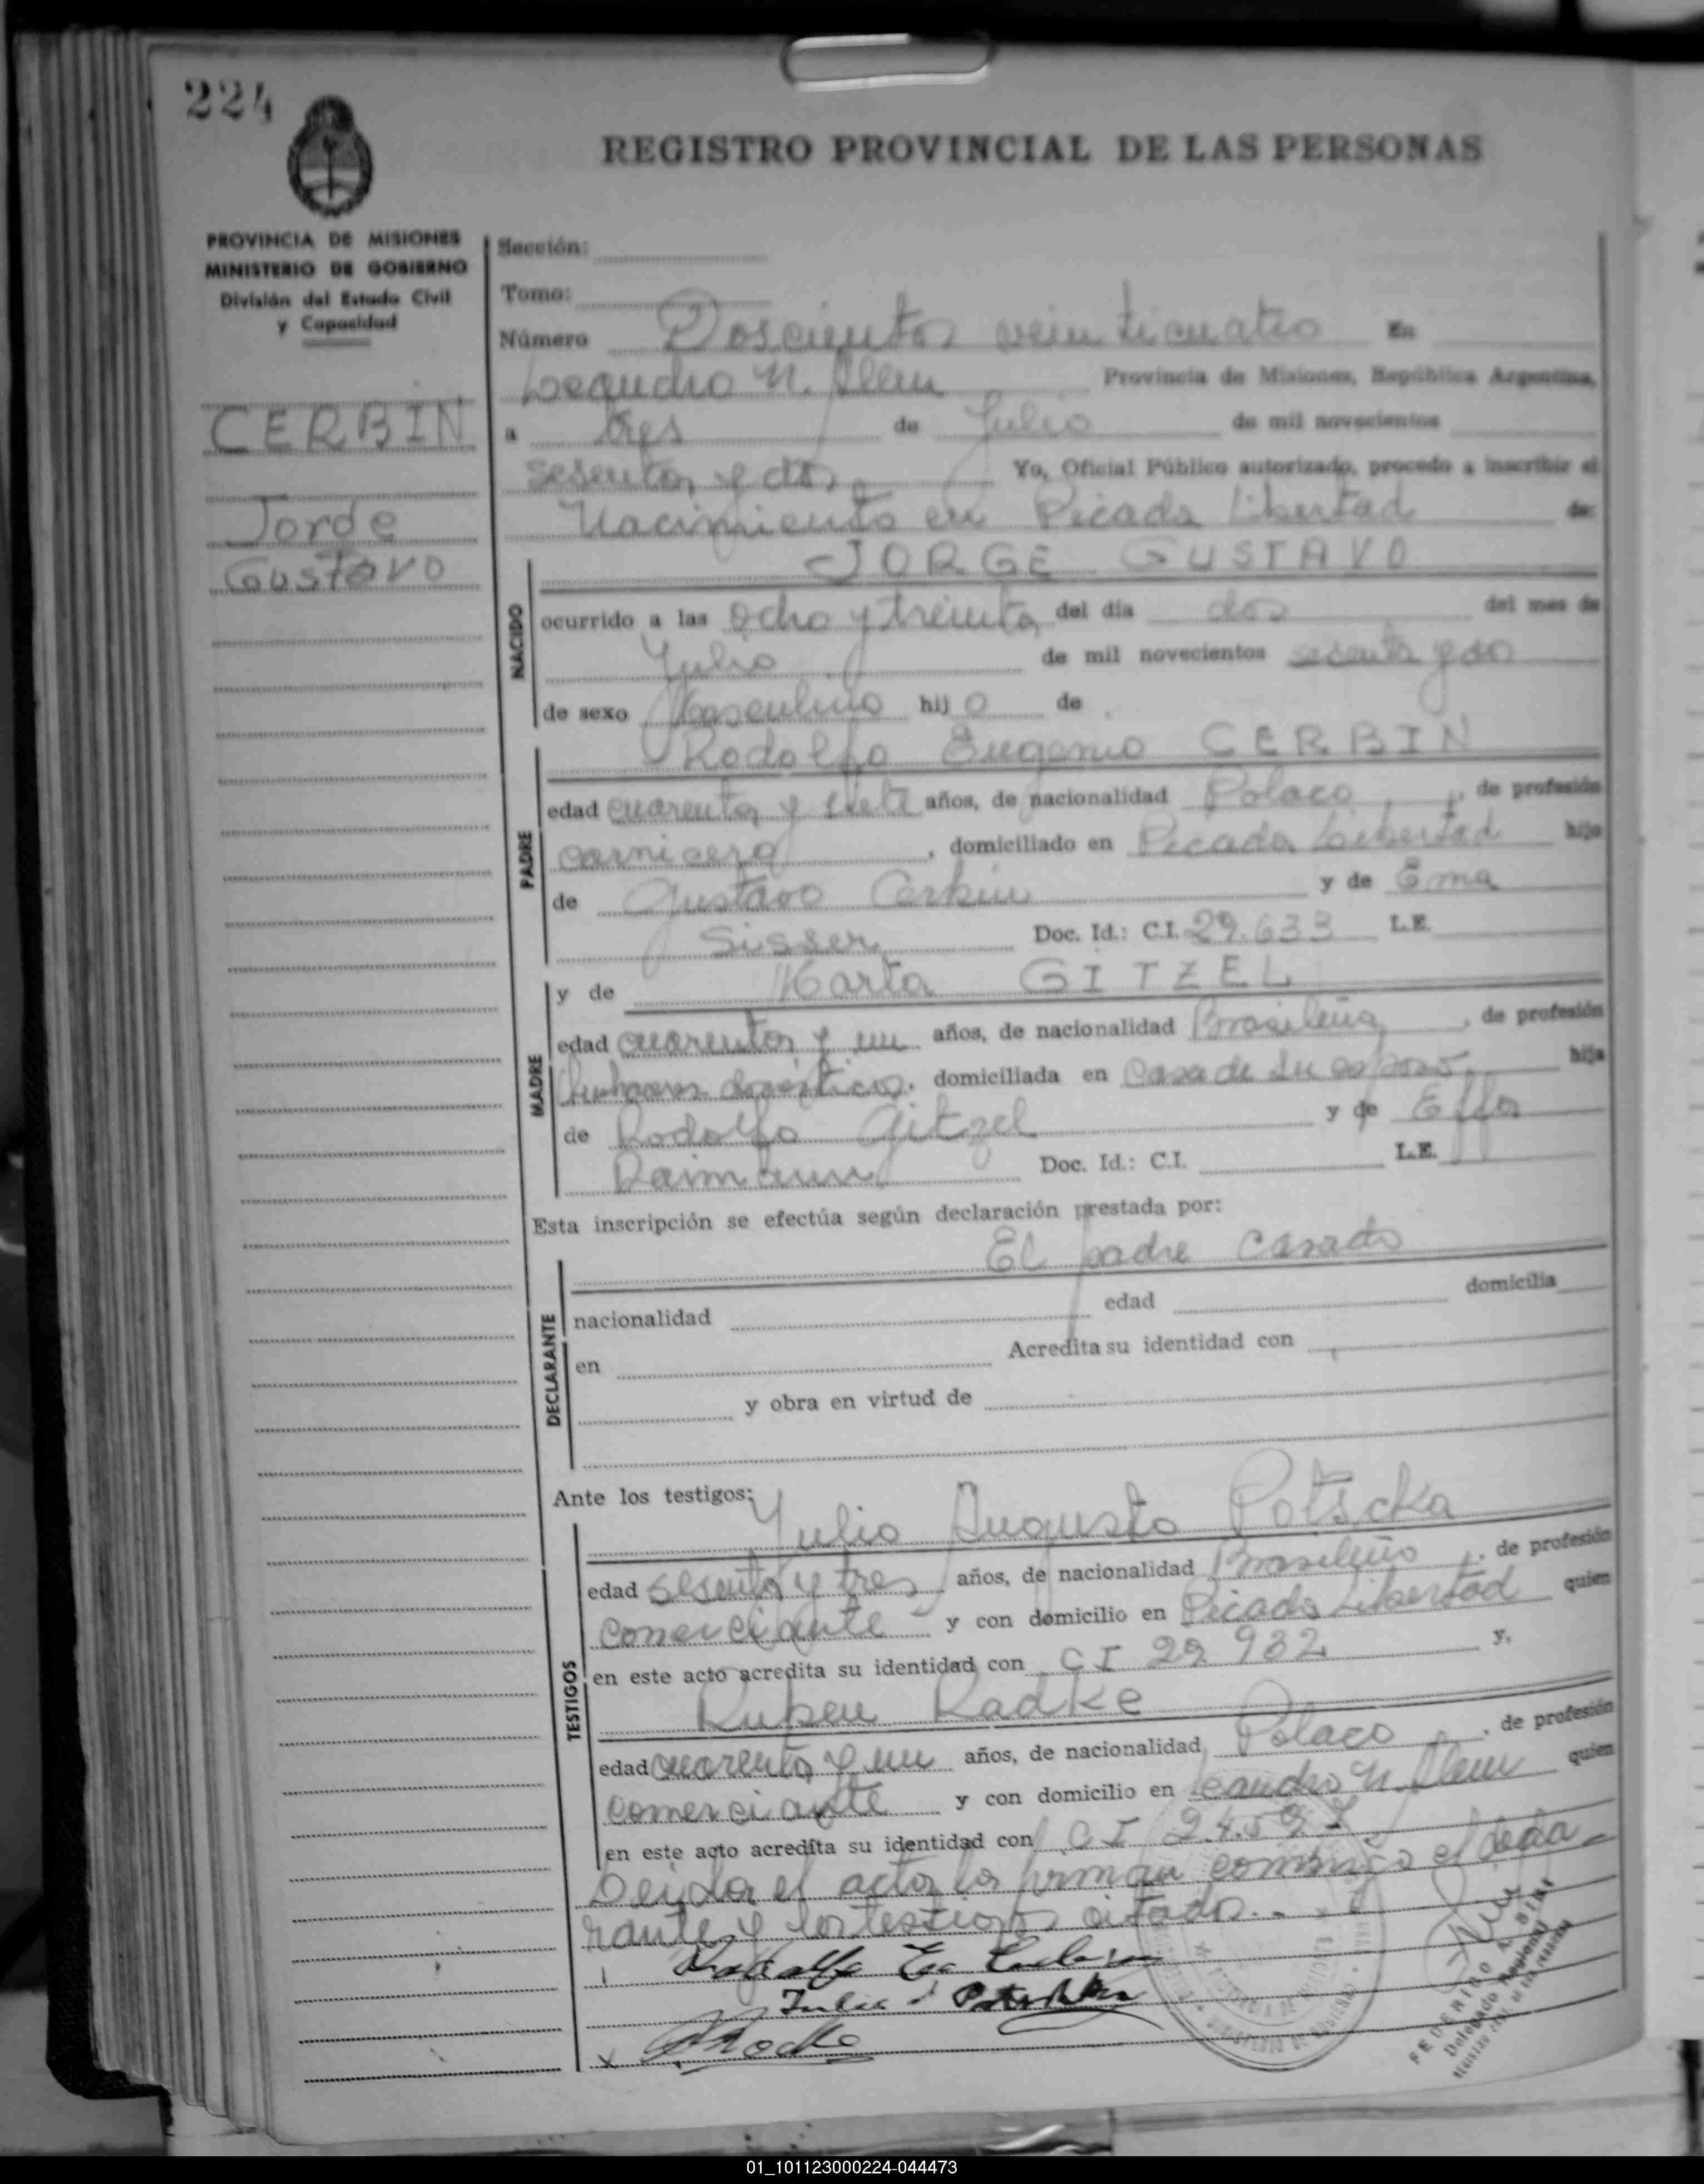 224
REGISTRO PROVINCIAL DE LAS PERSONAS
PROVINCIA DE MISIONES
MINISTERIO DE GOBIERNO
División del Estado Civil
y Capacidad
CERBIN
Jorge
Gustavo
Sección:
Tomo:
Número Doscientos veinticuatro En
Leandro N. Alem Provincia de Misiones, República Argentina,
a tres de Julio de mil novecientos
sesenta y dos Yo, Oficial Público autorizado, procedo a inscribir el
Nacimiento en Picada Libertad de:
JORGE GUSTAVO
NACIDO
ocurrido a las ocho y treinta del día dos del mes de
Julio de mil novecientos sesenta y dos
de sexo Masculino hijo de
Rodolfo Eugenio CERBIN
PADRE
edad cuarenta y siete años, de nacionalidad Polaco, de profesión
carnicero, domiciliado en Picada Libertad hijo
de Gustavo Cerbin y de Ema
Sisser Doc. Id.: C.I. 29.633 L.E.
y de Marta GITZEL
MADRE
edad cuarenta y un años, de nacionalidad Brasileña, de profesión
domésticos, domiciliada en casa de su esposo hija
de Rodolfo Gitzel y de
Raimann Doc. Id.: C.I. L.E.
Esta inscripción se efectúa según declaración prestada por:
El padre casado
DECLARANTE
nacionalidad edad domicilia
en Acredita su identidad con
y obra en virtud de
Ante los testigos:
Julio Augusto Potscka
TESTIGOS
edad sesenta y tres años, de nacionalidad Brasileño, de profesión
comerciante y con domicilio en Picada Libertad quien
en este acto acredita su identidad con CI 29 932 y,
Ruben Radke
edad cuarenta y un años, de nacionalidad Polaco, de profesión
comerciante y con domicilio en Leandro N. Alem quien
en este acto acredita su identidad con CI
Leida el acta la firman conmigo el decla-
rante y los testigos citados.-
FEDERICO A.
Delegado Regional
01_101123000224-044473